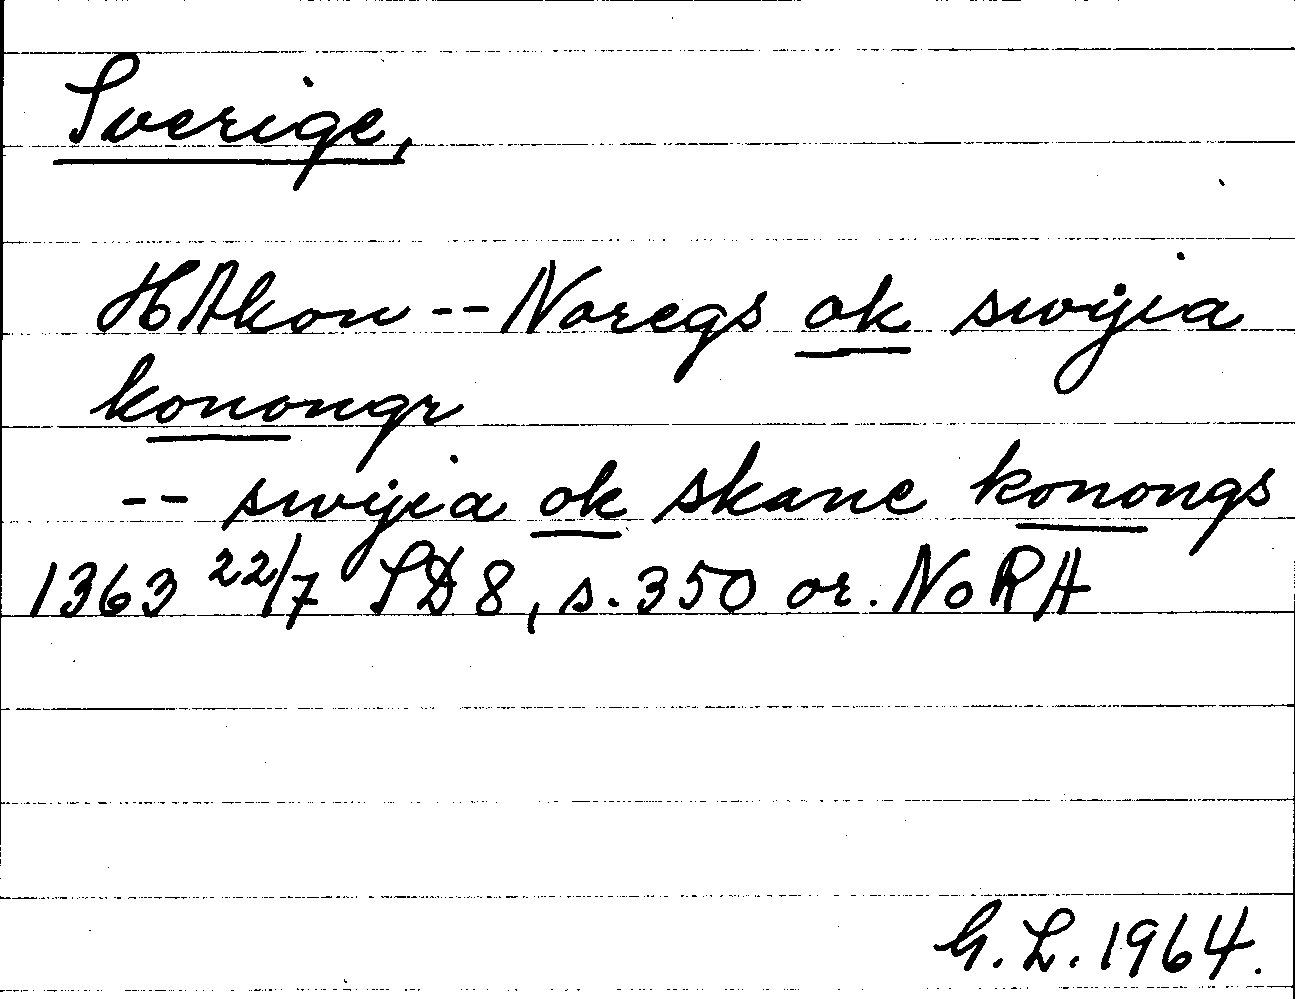 Sverige,
HAkon -- Noregs ok swijia
konongr
-- swijia ok skane konongs
1363 22/7 SD 8, s. 350 or. NoRA
G. L. 1964.